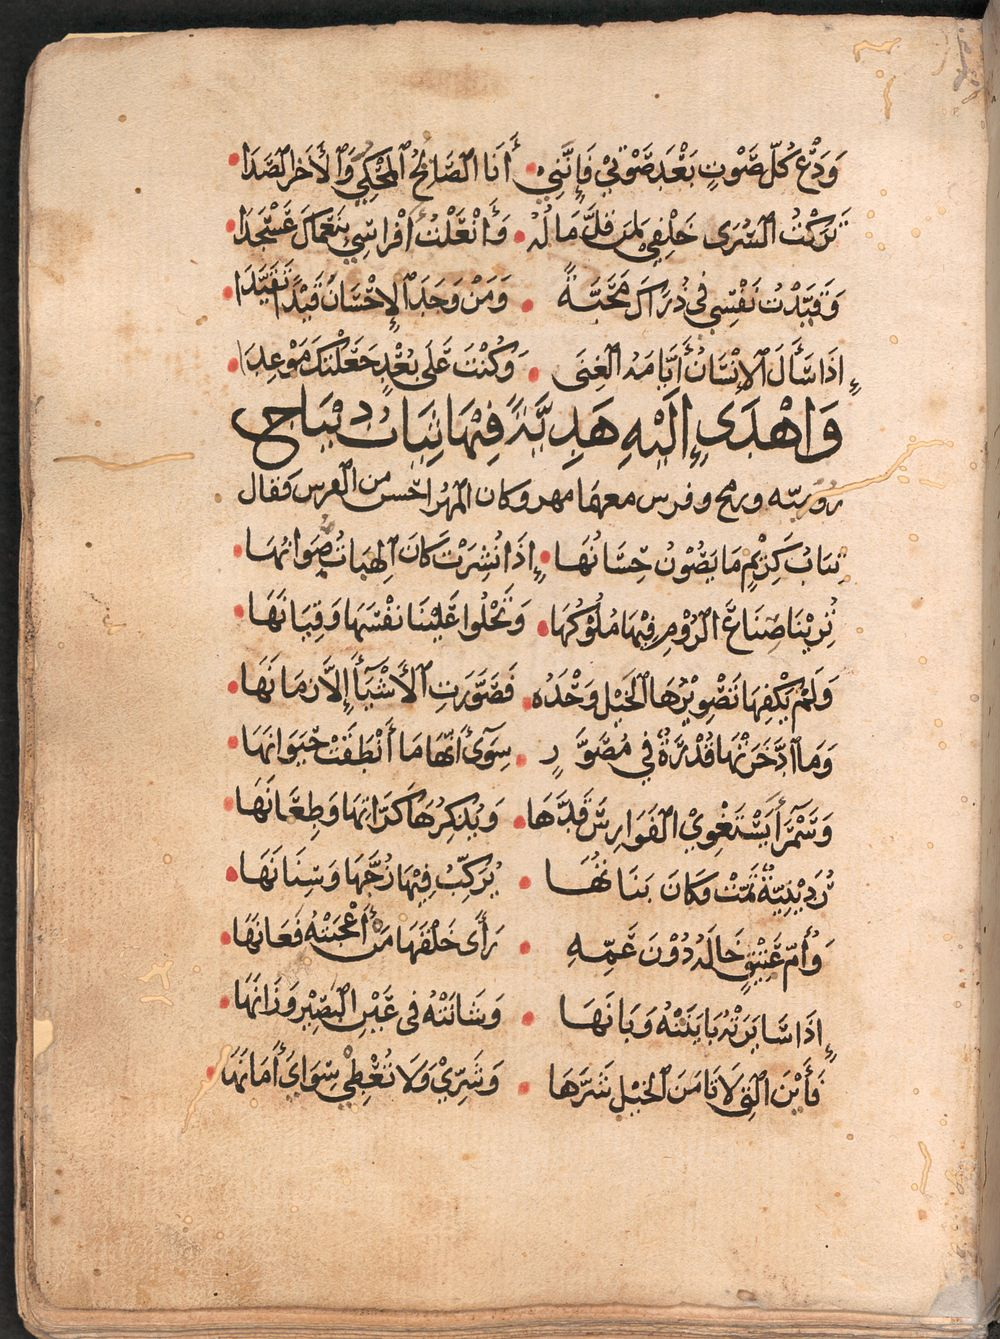 وَدَعْ كُلَّ صَوْتٍ بَعْدَ صَوْتِي فَإِنَّنِي • أَنَا الصَّائِحُ الْمَحْكِي وَالْأَخَرُ الصَّدَا •
تَرَكْتُ السُّرَى خَلْفِي لِمَنْ قَلَّ مَالُهُ • وَأَنْعَلْتُ أَفْرَاسِي بِنَعْمَاكَ عَسْجَدَا •
وَقَيَّدْتُ نَفْسِي فِي ذُرَاكَ مَحَبَّةً • وَمَنْ وَجَدَ الْإِحْسَانَ قَيْدًا تَقَيَّدَا •
إِذَا سَأَلَ الْإِنْسَانُ أَيَّامَهُ الْغِنَى • وَكُنْتَ عَلَى بُعْدٍ جَعَلْنَكَ مَوْعِدَا •
وَاهْدَى إِلَيْهِ هَدِيَّةً فِيْهَا ثِيَابُ دِيْبَاجٍ
روميّه ورمح وفرس معها مهر وكان المهر احسن من الفرس فقال
ثِيَابُ كَرِيْمٍ مَا يَصُوْنُ حِسَانُهَا • إِذَا نُشِرَتْ كَانَ الْهِبَاتُ صِوَانُهَا •
تُرِيْنَا صَنَاعَ الرُّوْمِ فِيْهَا مُلُوْكُهَا • وَتَجْلُوا عَلَيْنَا نَفْسَهَا وَقِيَانَهَا •
وَلَمْ يَكْفِهَا تَصْوِيْرُهَا الْخَيْلَ وَحْدَهُ • فَصَوَّرَتِ الْأَشْيَآءَ إِلَّا زَمَانَهَا •
وَمَا ادَّخَرَتْهَا قُدْرَةً فِي مُصَوِّرٍ • سِوَى أَنَّهَا مَا أَنْطَقَتْ حَيَوَانَهَا •
وَسَمْرَآءُ يَسْتَغْوِي الْفَوَارِسَ قَدُّهَا • وَيُذْكِرُهَا كَرَّاتِهَا وَطِعَانَهَا •
رُدَيْنِيَّةٌ تَمَّتْ وَكَانَ نَبَاتُهَا • يُرَكِّبُ فِيْهَا زُجَّهَا وَسِنَانَهَا •
وَأُمُّ عَتِيْقٍ خَالُهُ دُوْنَ عَمِّهِ • رَأَى خَلْقَهَا مَنْ أَعْجَبَتْهُ فَعَانَهَا •
إِذَا سَايَرَتْهُ بَايَنَتْهُ وَبَانَهَا • وَشَانَتْهُ فِي عَيْنِ الْبَصِيْرِ وَزَانَهَا •
فَأَيْنَ الَّتِي لَا تَامَنُ الْخَيْلُ شَرَّهَا • وَشَرِّيْ وَلَا تُعْطِي سِوَايَ أَمَانَهَا •